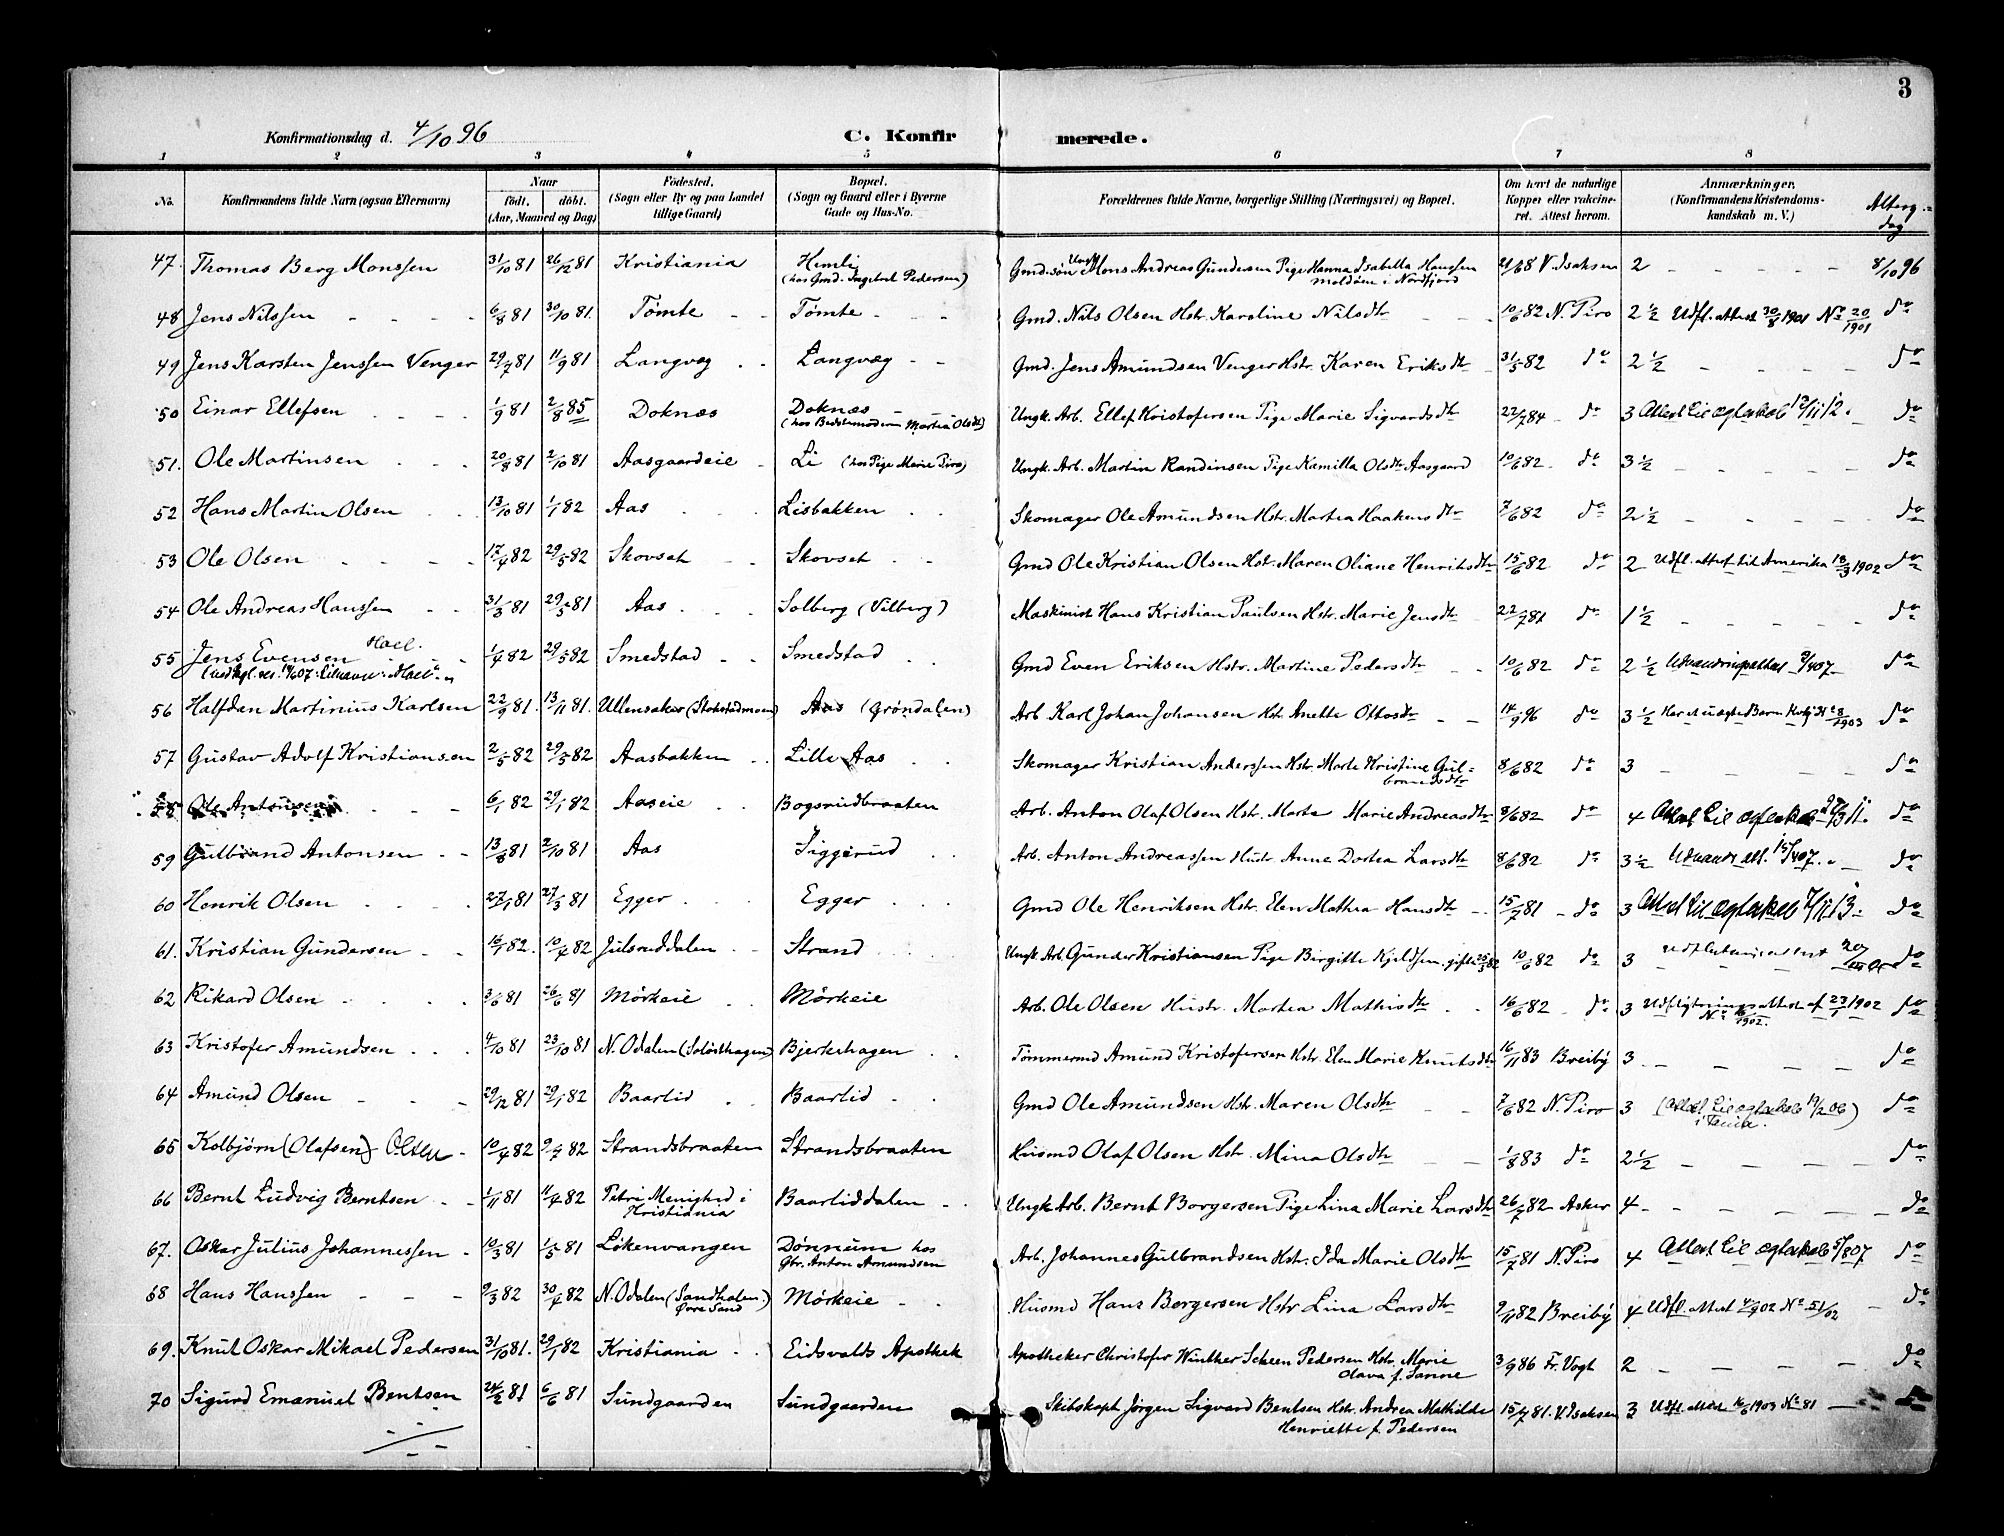 3
Konfirmationsdag d. 4/10 96 C. Konfir merede.
1 2 3 4 5 6 7 8
No. Konfirmandens fulde Navn (ogsaa Efternavn) Naar født. døbt. (Aar, Maaned og Dag) Fødested. (Sogn eller By og paa Landet tillige Gaard) Bopæl. (Sogn og Gaard eller i Byerne Gade og Hus-No. Forældrenes fulde Navne, borgerlige Stilling (Næringsvei) og Bopæl. Om havt de naturlige Kopper eller vakcineret. Attest herom. Anmærkninger. (Konfirmandens Kristendomskundskab m. V.) Altergdag
47. Thomas Berg Monssen 31/10 81 26/12 81 Kristiania Himli (hos Gmd. Ingebret Pedersen) Gmd.søn Ungk. Mons Andreas Gundersen Pige Hanna Isabella Hanssen Moldøen i Nordfjord 21/6 8 V. Isaksen 2 - - - - - 8/10 96
48 Jens Nilssen - - - 6/8 81 30/10 81. Tømte - - Tømte - - - Gmd. Nils Olsen Hstr. Karoline Nilsdtr - - 10/6 82 N. Piro 2 1/2 Udfl. attest 30/8 1901 No 20/1901 do
49 Jens Karsten Jenssen Venger 29/7 81 11/9 81 Langvæg - - Langvæg - - Gmd. Jens Amundsen Venger Hstr. Karen Eriksdtr 31/5 82 do 2 1/2 - - - - do
50 Einar Ellefsen - - - - 1/9 81 2/8 85 Doknæs Doknæs (hos Bedstemoderen Martea Olsdtr) Ungk. Arb. Ellef Kristofersen Pige Marie Sigvardsdtr 22/7 84 - do 3 Attest til ægteskab 12/11 12. do
51. Ole Martinsen - - - 20/8 81 2/10 81 Aasgaardeie - Li (hos Pige Marie Piro) Ungk. Arb. Martin Randinsen Pige Kamilla Olsdtr Aasgaard 10/6 82 - do 3 1/2 - - - - - do
52 Hans Martin Olsen - - 13/10 81 1/1 82 Aas - - - Lisbakken - - Skomager Ole Amundsen Hstr. Martea Haakensdtr 7/6 82 do 2 1/2 - - - - - do
53 Ole Olsen - - - - 17/4 82 29/5 82 Skovset - - Skovset - - Gmd Ole Kristian Olsen Hst. Maren Oliane Henriksdtr 15/6 82 do 2 Udfl. attest til Amerika 13/3 1902 do
54 Ole Andreas Hanssen - - 31/3 81 29/5 81 Aas - - - Solberg (Vilberg) Maskinist Hans Kristian Paulsen Hstr. Marie Jensdtr 22/7 81 do 1 1/2 - - - - - do
55 Jens Evensen Hoel. - - - 1/4 82 29/5 82 Smedstad - - Smedstad - - Gmd Even Eriksen Hstr. Martine Pedersdtr - - 10/6 82 do 2 1/2 Udvandringsattest 3/4 07 - do
56 Halfdan Martinius Karlsen 22/9 81. 13/11 81. Ullensaker (Stokstadmoen) Aas (Grøndalen) Arb. Karl Johan Johansen Hstr Anette Ottosdtr - - 14/9 96 do 3 1/2 Har et uægte Barn No 8/1903 do
57 Gustav Adolf Kristiansen 2/5 82 29/5 82 Aasbakken - - Lille Aas - - Skomager Kristian Anderssen Hstr. Marte Kristine Gulbrandsdtr 8/6 82 do 3 - - - - do
58 Ole Antonsen - - - 6/1 82 29/1 82 Aaseie - - Bogsrudbraaten Arb. Anton Olaf Olsen Hstr. Marta Marie Andreasdtr 8/6 82 do 4 Attest til ægteskab do
59 Gulbrand Antonsen - - 13/8 81 2/10 81 Aas Siggerud - - Arb. Anton Andreassen Hustr. Anne Dortea Larsdtr 8/6 82 do 3 1/2 Udvandr. att. 15/4 07. - - do
60 Henrik Olsen - - - - 27/1 81 27/3 81 Egger - - - Egger - - - Gmd Ole Henriksen Hstr. Elen Mathea Hansdtr - - 15/7 81 - do 3 Attest til ægteskab 7/11 13. do
61. Kristian Gundersen - - 16/1 82. 10/4 82 Julsruddalen - - Strand - - - - Ungk. Arb. Gunder Kristiansen Pige Birgitte Kjeldsen. gifte 25/3 82 10/6 82 do 3 do
62 Rikard Olsen - - - - 3/6 81 26/6 81 Mørkeie - - Mørkeie Arb. Ole Olsen Hustr. Martea Mathisdtr - - 16/6 82 - do 3 Udflytningsattest af 23/1 1902 No 16/1902. do
63 Kristofer Amundsen - - - 4/10 81 23/10 81 N. Odalen (Solösthagen) Bjerkehagen - - Tømmermd Amund Kristofersen Hstr. Elen Marie Knutsdtr 16/11 83 Breiby 3 - - - - - do
64 Amund Olsen - - - 29/12 81 29/1 82 Baarlid - - Baarlid - - Gmd Ole Amundsen Hstr. Maren Olsdtr - - 7/6 82 N. Piro 3 (Attest til ægteskab 19/2 06) do
65 Kolbjørn (Olafsen) Olsen - 10/4 82 9/7 82 Strandsbraaten Strandsbraaten Husmd Olaf Olsen Hstr. Mina Olsdtr - - 1/8 83 do 2 1/2 - - - - - do
66 Bernt Ludvig Berntsen - - 1/11 81 11/4 82 Petri Menighed i Kristiania Baarliddalen - - Ungk Arb. Bernt Borgersen Pige Lina Marie Larsdtr 26/7 82 - Asker 4 - - - - - do
67. Oskar Julius Johannessen - 10/3 81 1/5 81 Løkenvangen Dønnum hos Gbr. Anton Amundsen Arb. Johannes Gulbrandsen Hstr. Ida Marie Olsdtr 15/7 81 N. Piro 4 Attest til ægteskab 5/8 07 do
68 Hans Hanssen - - - 9/3 82 30/4 82 N. Odalen (Sandhalen.) Øvre Sand Mørkeie - - Husmd Hans Borgersen Hstr. Lina Larsdtr 9/11 82 Breiby 4 Udfl. attest 4/9 02 No 51/02 - do
69. Knut Oskar Mikael Pedersen 31/10 81. 29/1 82 Kristiania - - Eidsvolds Apothek Apotheker Christofer Winther Scheen Pedersen Hstr. Marie Olava f. Sanne 3/9 86 Fr. Vogh 2 - - - - do
70 Sigurd Emanuel Bentsen 24/2 81 6/6 81 Sundgaarden Sundgaarden Skibskapt Jørgen Sigvard Bentsen Hstr. Andrea Mathilde Henriette f. Pedersen 15/7 81. V. Isaksen 3 Udfl. attest 16/6 1903 No 81 - do